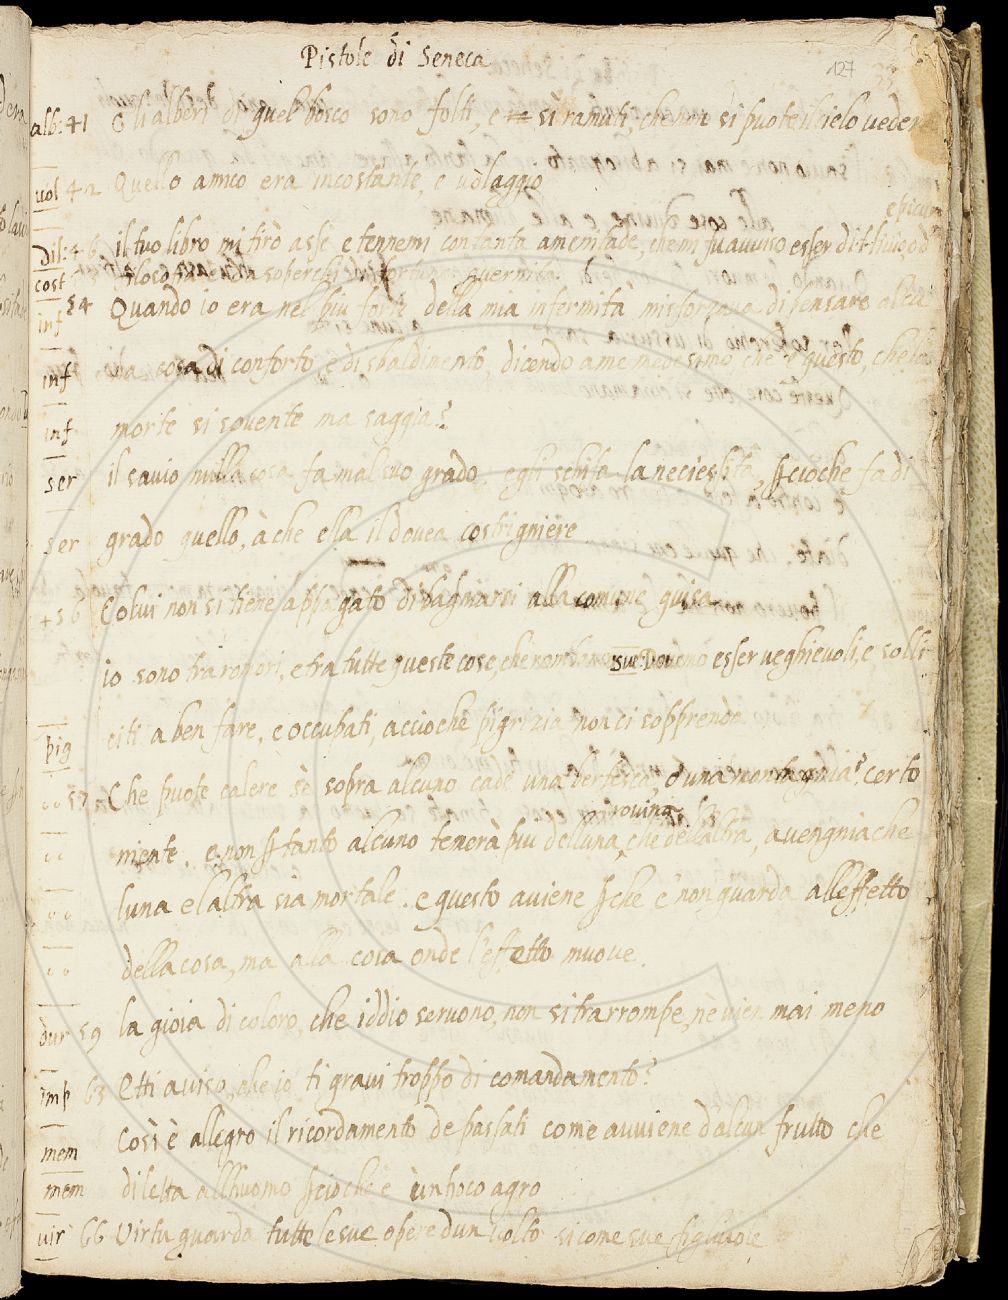 Pistole di Seneca
127
alb: 41 Gli alberi di quel bosco sono folti, e si ramuti, che non si puote il cielo vedere
vol 42 Quello amico era incostante, e volaggio
epicur
dil: 46 il tuo libro mi tirò asse e tennemi con tanta amenitade, che mi fu avviso esser di t. livio, o d
cost
inf 54 Quando io era nel piu forte della mia infermità misforzava di pensare alcu
inf na cosa di conforto, e di sbaldimento, dicendo a me medesimo che è questo, che la
inf morte si sovente ma saggia?
ser il savio nulla cosa fa mal suo grado egli schifa la neciessità, pcioche fa di
ser grado quello, à che ella il dovea costrigniere
+56 Colui non si tiene appagato di bagniarsi alla comune guisa
io sono fra romori, e fra tutte queste cose, che Dovemo esser veghievoli, e solli
citi a ben fare, e occupati, accioche pigrizia non ci sopprenda
pig
57 Che puote calere sè sopra alcuno cade una bertesca, o una montagnia? certo
rovina
miente. e non ptanto alcuno temerà piu delluna, che dellaltra, avengnia che
luna e laltra sia mortale. e questo aviene pche è non guarda alleffetto
della cosa, ma alla cosa onde l'effetto muove.
dur 59 la gioia di coloro, che iddio servono, non si trarrompe, ne vien mai meno
imp 63 Etti aviso, che io ti gravi troppo di comandamento?
mem Così è allegro il ricordamento de passati come avviene d'alcun frutto che
mem diletta allhuomo pcioche è un poco agro
vir 66 Virtu guarda tutte le sue opere dun volto si come sue figliuole